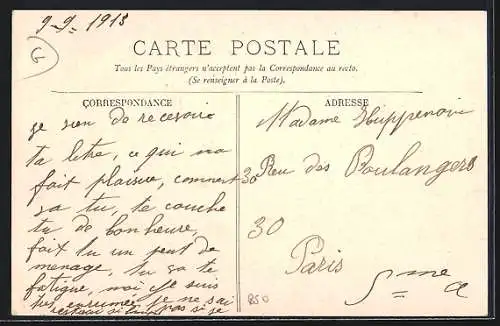 9-9-1913
CARTE POSTALE
Tous les Pays étrangers n'acceptent pas la Correspondance au recto.
(Se renseigner à la Poste).
CORRESPONDANCE
je sien de recevoir
ta letre, ce qui ma
fait plaisir, comment
sa tu, te couche
tu de bonheure,
fait tu un peut de
menage, tu sa te
fatigue, moi je suis
tres enrumée je ne sai
pas si je
ADRESSE
Madame
30 Rue des Boulangers
30
Paris
5 me
850